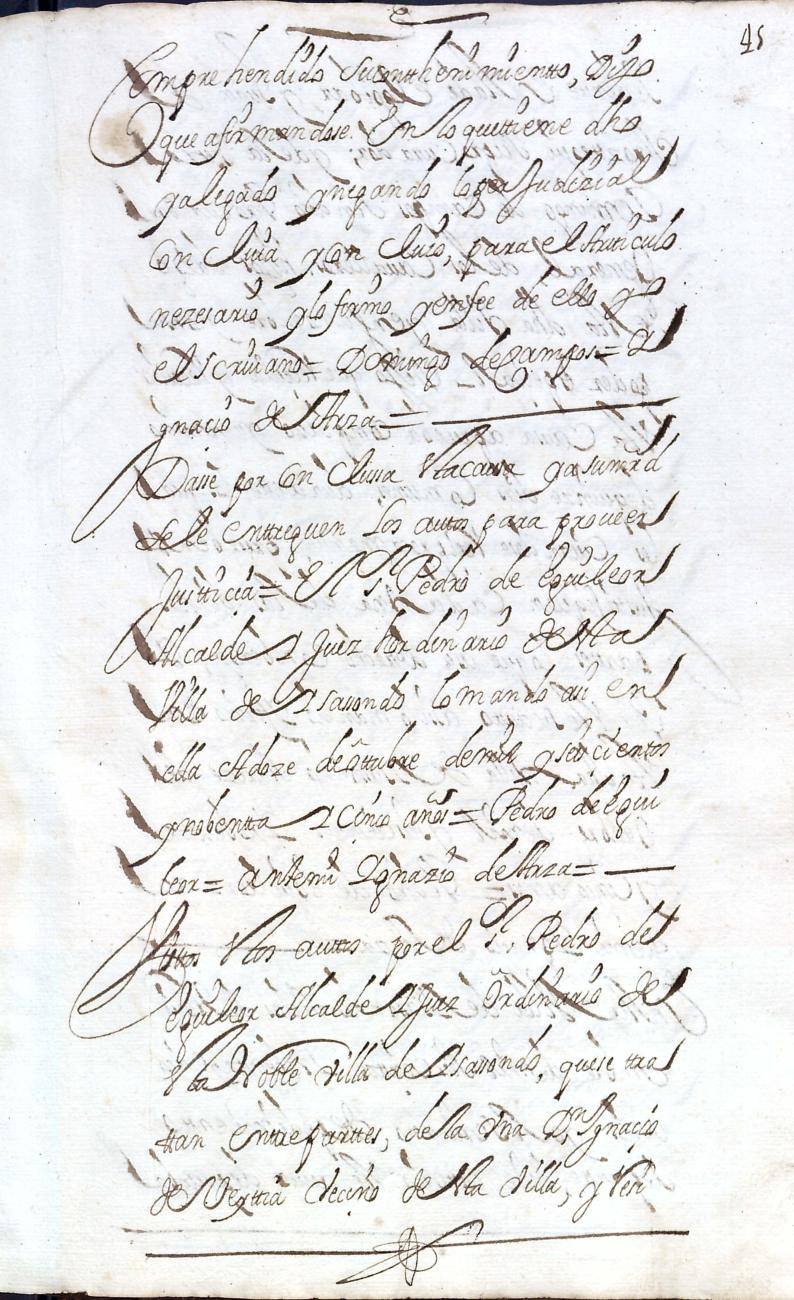 45
Comprehendido su conthenimientto, Dijo
que afirmandose En lo que ttiene dho
y alegado y negando lo perJudizial
Concluia y Concluio, para el Articulo
nezesario y lo firmo y en fee de ello yo
el sscriuano = Domingo de Campos = Y
gnacio de Arza =
Dase por Conclussa sta caussa y a su mrd
se le enttreguen los auttos para proueer
Justticia = El Sr Pedro de eguileor
Alcalde I Juez hordinario de sta
Villa de Isasondo lo mando assi en
ella A doze de ottubre de mil y seis cientos
y nobentta I Cinco años = Pedro de Egui
leor = Antemi Ignazio de Arza =
Visttos stos auttos por el Sr Pedro de
Eguileor Alcalde I Juez Ordinario de
sta Noble Villa de Isasondo, que se tra
ttan entre parttes, de la Vna Dn Ignacio
de vecino de sta Villa, y Ven